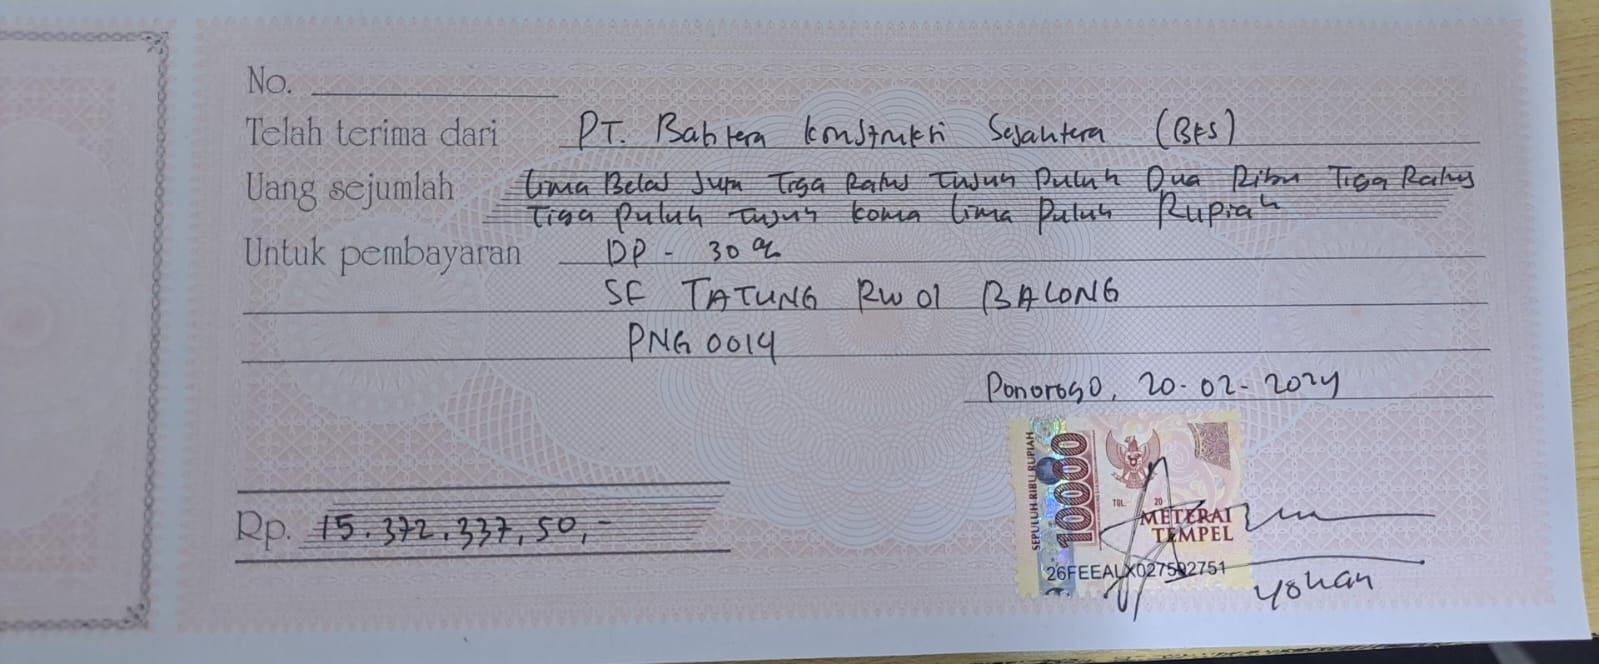 No.
Telah terima dari PT. Bahtera Konstruksi Sejahtera (BKS)
Uang sejumlah Lima Belas Juta Tiga Ratus Tujuh Puluh Dua Ribu Tiga Ratus
Tiga Puluh Tujuh Koma Lima Puluh Rupiah
Untuk pembayaran DP - 30 %
SF TATUNG RW 01 BALONG
PNG 0014
Ponorogo, 20-02-2024
SEPULUH RIBU RUPIAH
10000
TGL. 20
METERAI
TEMPEL
26FEEALX027592751
Rp. 15.372.337,50,-
Yohan